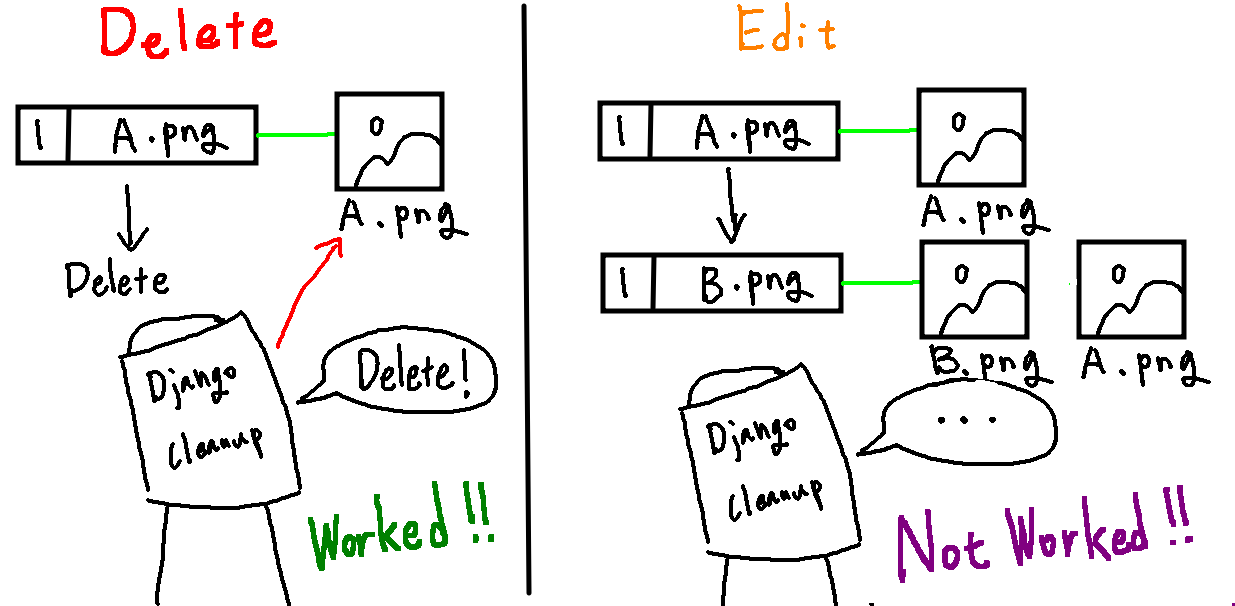 Delete
1 A.png
A.png
Delete
Django
cleanup
Delete!
Worked!!
Edit
1 A.png
A.png
1 B.png
B.png
A.png
Django
cleanup
...
Not Worked!!